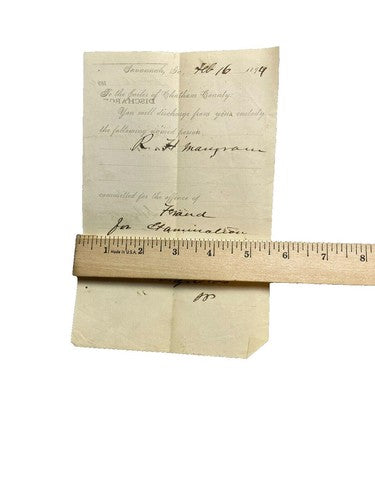 Savannah, Ga. Feb 16 1894
To the Jailer of Chatham County:
DISCHARGE
You will discharge from your custody
the following named person
R. H Mangram
committed for the offence of
Fraud
for Examination
1 2 3 4 5 6 7 8
Made in U.S.A.